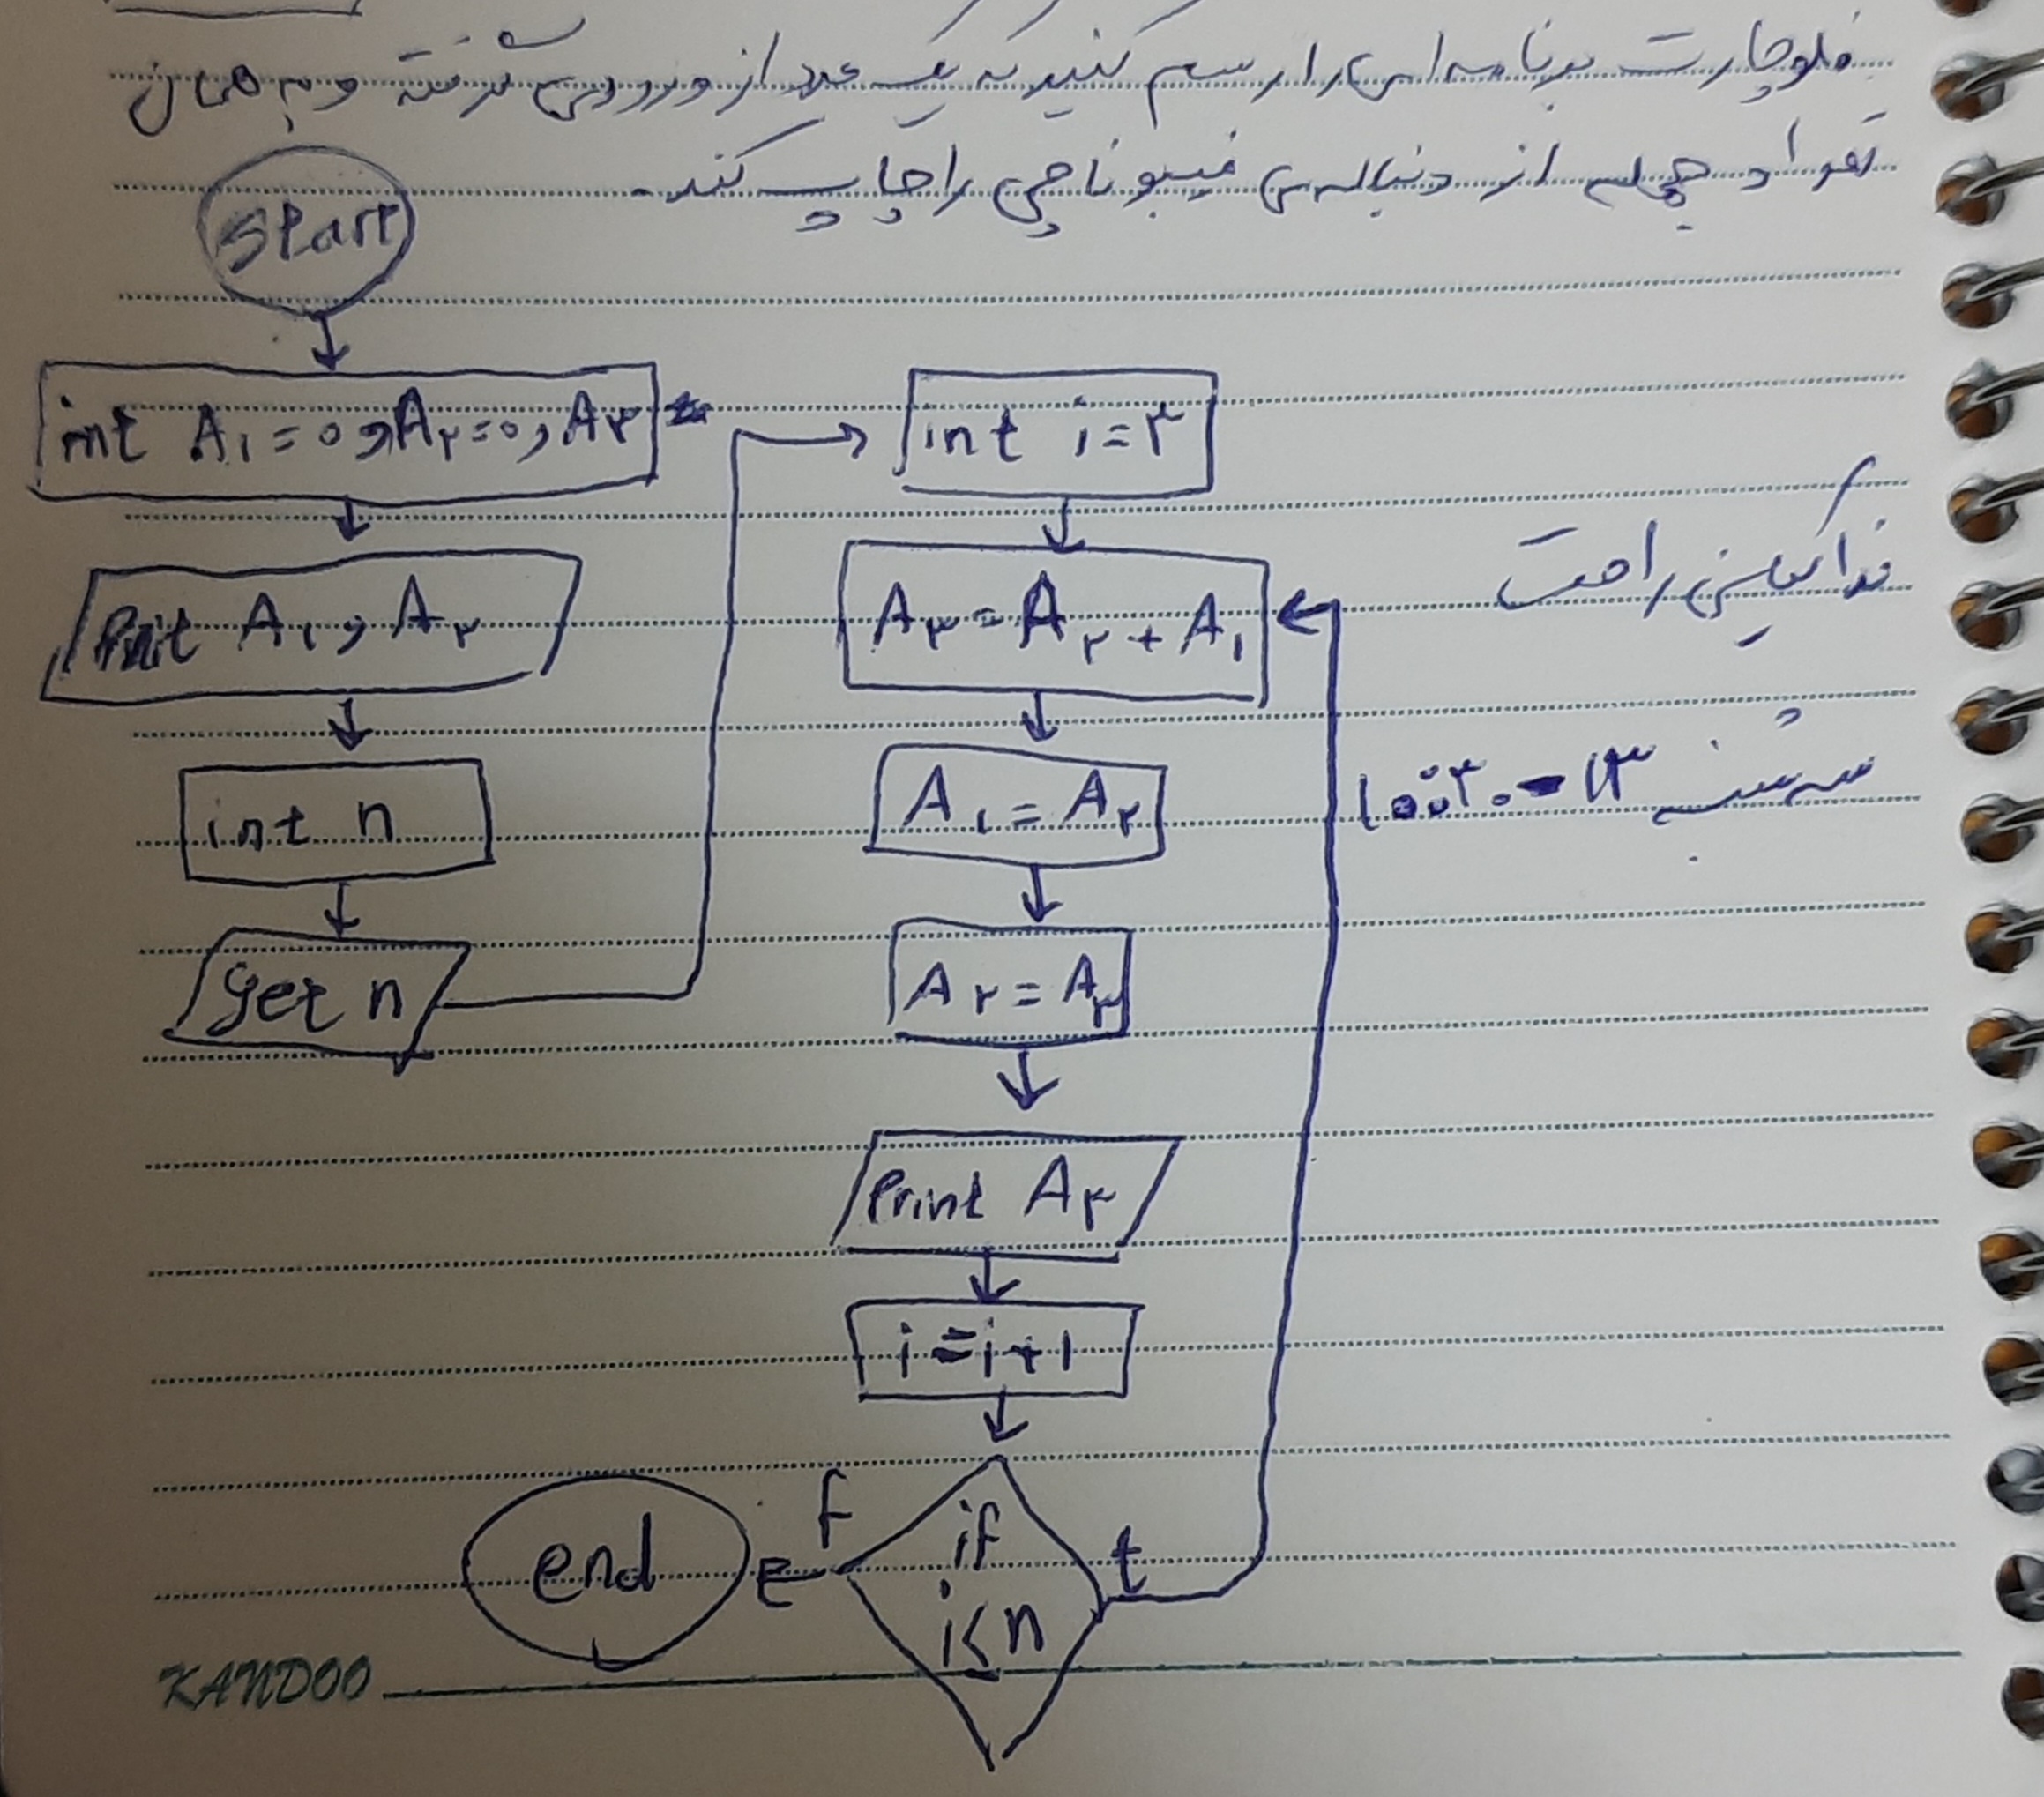 فلوچارت برنامه‌ای را رسم کنید که یک عدد از ورودی گرفته و به همان
تعداد جمله از دنباله‌ی فیبوناچی را چاپ کند.
start
int A۱ = ۰, A۲=۰, A۳
Print A۱, A۲
int n
get n
int i=۳
A۳ = A۲ + A۱
A۱ = A۲
A۲ = A۳
Print A۳
i=i+1
if
i≤n
t
f
end
راحت
سه شنبه ۱۳ - ۱۰:۳۰
KANDOO